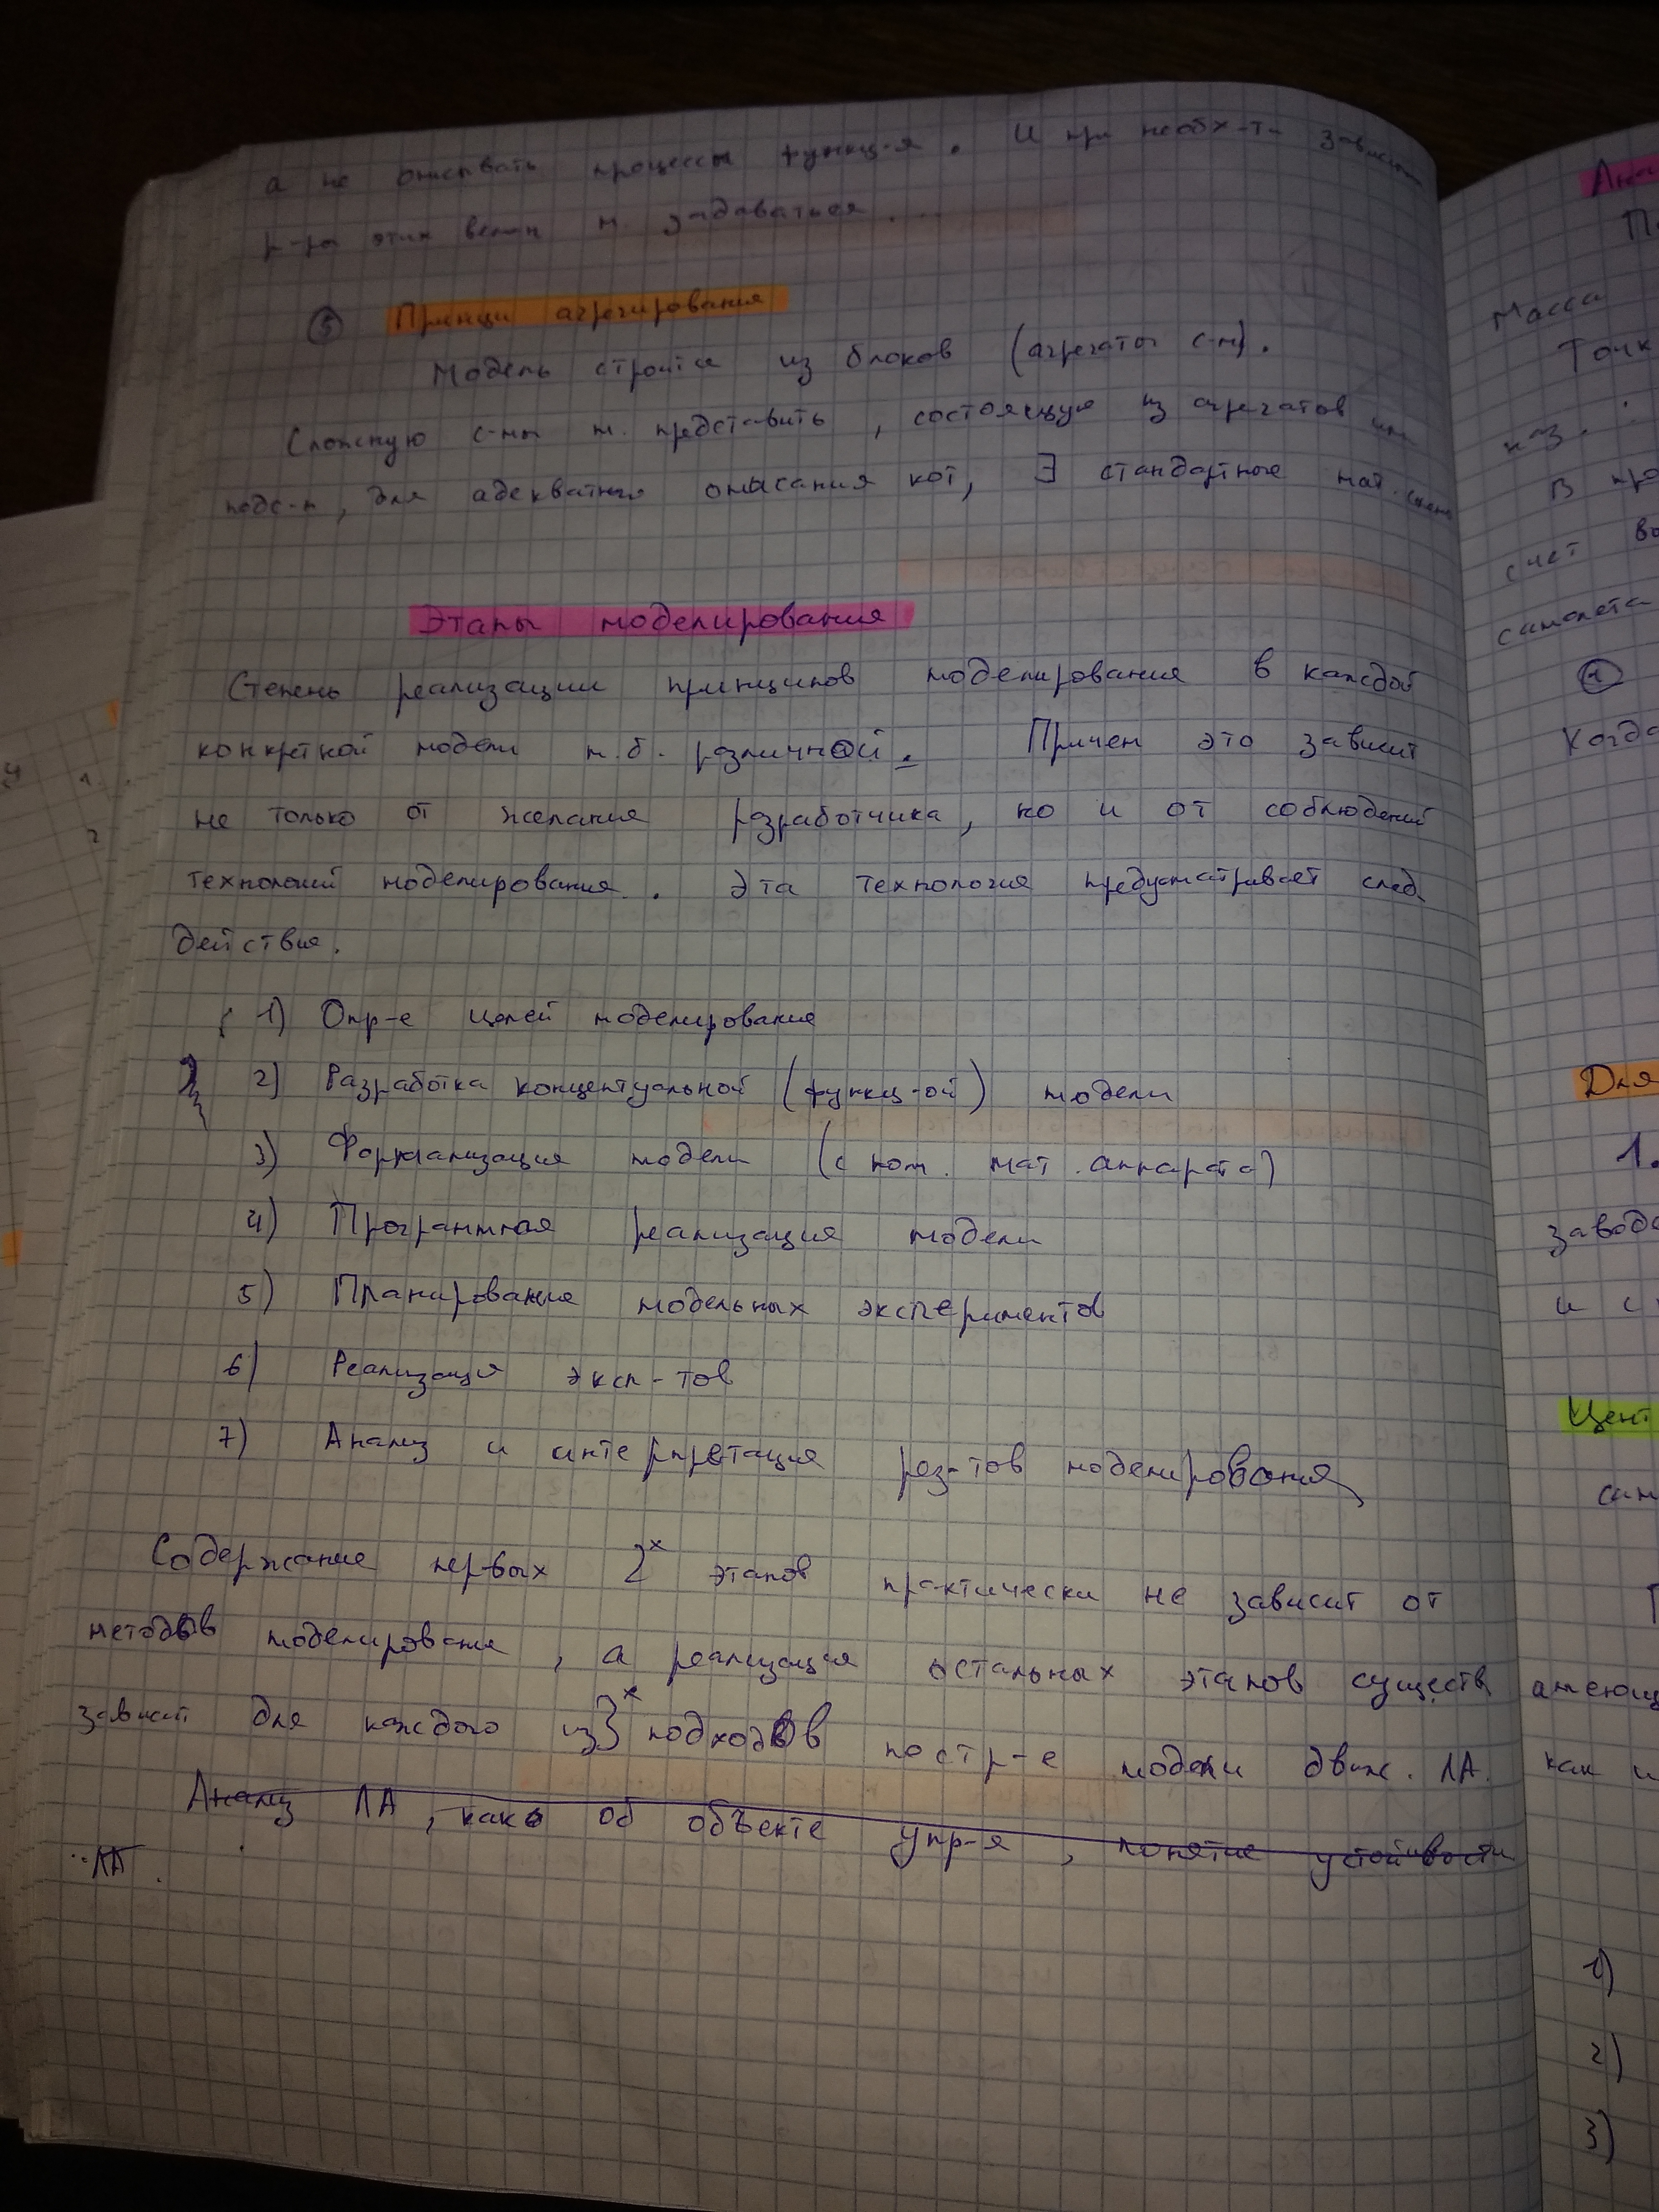 а не описывать процессы функц-я. И при необх-ти зависим
р-ры этих велич м. задаваться...
⑤ Принци агрегирования
Модель строится из блоков (агрегаты с-м).
Сложную с-мы м. представить, состоящую из агрегатов или
подс-м, для адекватная описания кот, ∃ стандартные мат. схемы
Этапы моделирования
Степень реализации принципов моделирования в каждой
конкретной модели м.б. различной. Причем это зависит
не только от желания разработчика, но и от соблюдений
технологий моделирования. Эта технология предусматривает след.
действия.
1) Опр-е целей моделирования
2) Разработка концептуальной (функц-ой) модели
3) Формализация модели (с пом. мат. аппарата)
4) Программная реализация модели
5) Планирование модельных экспериментов
6) Реализация эксп-тов
7) Анализ и интерпретация рез-тов моделирования
Содержание первых 2х этапов практически не зависит от
методов моделирования, а реализация остальных этапов существ
зависит для каждого из 3х подходов постр-е модели движ. ЛА.
Анализ ЛА, како об объекте упр-я, понятие устойчивости
ЛА.
Масса
Точк
наз.
В про
счет
самолета
①
Когда
Для
1.
и с
Цент
сам
как и
1)
2)
3)